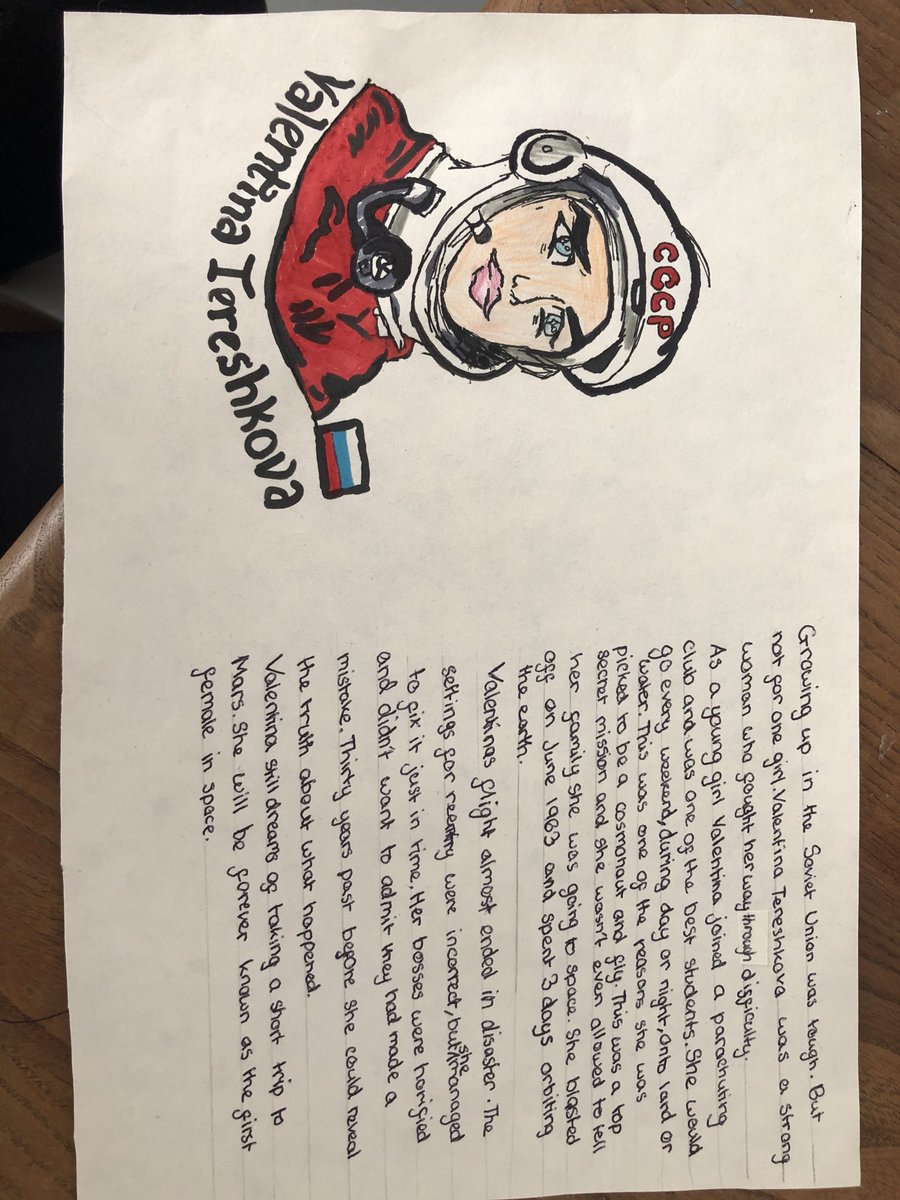 CCCP
Valentina Tereshkova
Growing up in the Soviet Union was tough. But
not for one girl. Valentina Tereshkova was a strong
woman who fought her way through difficulty.
As a young girl Valentina joined a parachuting
club and was one of the best students. She would
go every weekend, during day or night, onto land or
water. This was one of the reasons she was
picked to be a cosmonaut and fly. This was a top
secret mission and she wasn't even allowed to tell
her family she was going to space. She blasted
off on June 1963 and spent 3 days orbiting
the earth.
Valentinas flight almost ended in disaster. The
settings for reentry were incorrect, but she managed
to fix it just in time. Her bosses were horrified
and didn't want to admit they had made a
mistake. Thirty years past before she could reveal
the truth about what happened.
Valentina still dreams of taking a short trip to
Mars. She will be forever known as the first
female in space.